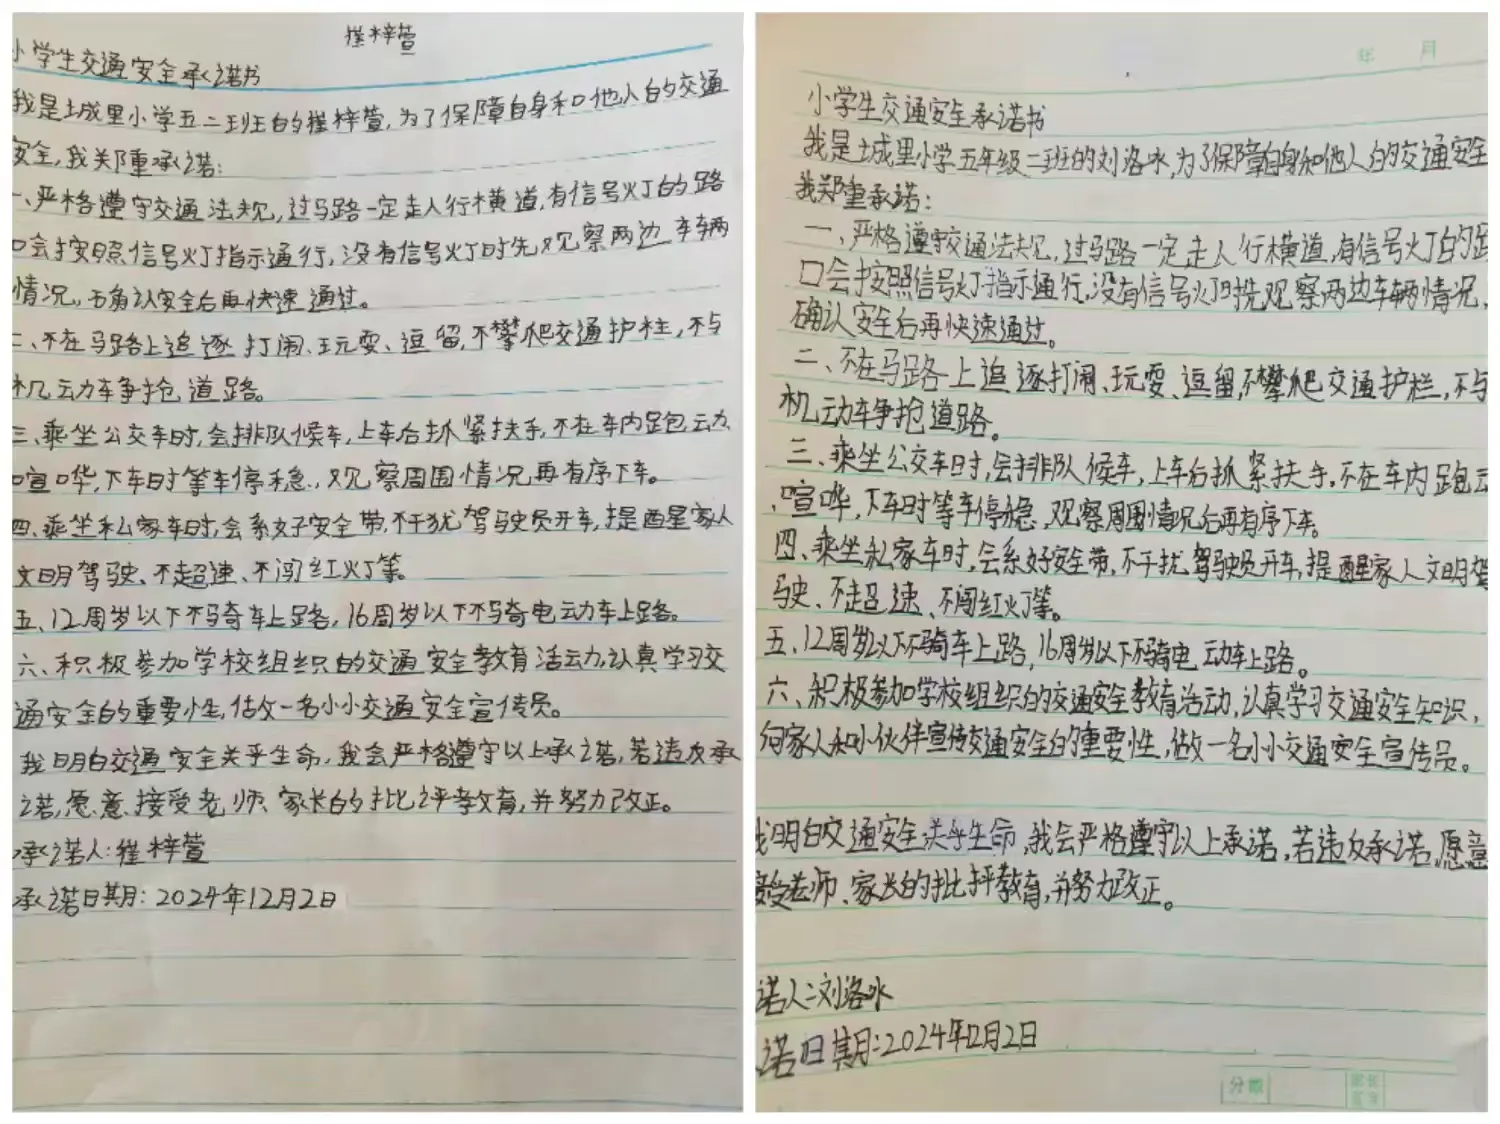 崔梓萱
小学生交通安全承诺书
我是土城里小学五二班的崔梓萱,为了保障自身和他人的交通
安全,我郑重承诺:
一、严格遵守交通法规,过马路一定走人行横道,有信号灯的路
口会按照信号灯指示通行,没有信号灯时先观察两边车辆
情况,确认安全后再快速通过。
二、不在马路上追逐打闹、玩耍、逗留,不攀爬交通护栏,不与
机动车争抢道路。
三、乘坐公交车时,会排队候车,上车后抓紧扶手,不在车内跑动
喧哗,下车时等车停稳,观察周围情况再有序下车。
四、乘坐私家车时,会系好安全带,不干扰驾驶员开车,提醒家人
文明驾驶、不超速、不闯红灯等。
五、12周岁以下不骑车上路,16周岁以下不骑电动车上路。
六、积极参加学校组织的交通安全教育活动,认真学习交
通安全的重要性,做一名小小交通安全宣传员。
我明白交通安全关乎生命,我会严格遵守以上承诺,若违反承
诺,愿意接受老师、家长的批评教育,并努力改正。
承诺人:崔梓萱
承诺日期:2024年12月2日
年 月
小学生交通安全承诺书
我是土城里小学五年级二班的刘洛冰,为了保障自身和他人的交通安全
我郑重承诺:
一、严格遵守交通法规,过马路一定走人行横道,有信号灯的路
口会按照信号灯指示通行,没有信号灯时先观察两边车辆情况,
确认安全后再快速通过。
二、不在马路上追逐打闹、玩耍、逗留,不攀爬交通护栏,不与
机动车争抢道路。
三、乘坐公交车时,会排队候车,上车后抓紧扶手,不在车内跑动
、喧哗,下车时等车停稳,观察周围情况后再有序下车。
四、乘坐私家车时,会系好安全带,不干扰驾驶员开车,提醒家人文明驾
驶、不超速、不闯红灯等。
五、12周岁以下不骑车上路,16周岁以下不骑电动车上路。
六、积极参加学校组织的交通安全教育活动,认真学习交通安全知识,
向家人和小伙伴宣传交通安全的重要性,做一名小小交通安全宣传员。
我明白交通安全关乎生命,我会严格遵守以上承诺,若违反承诺,愿意
接受老师、家长的批评教育,并努力改正。
诺人:刘洛冰
诺日期:2024年12月2日
分数